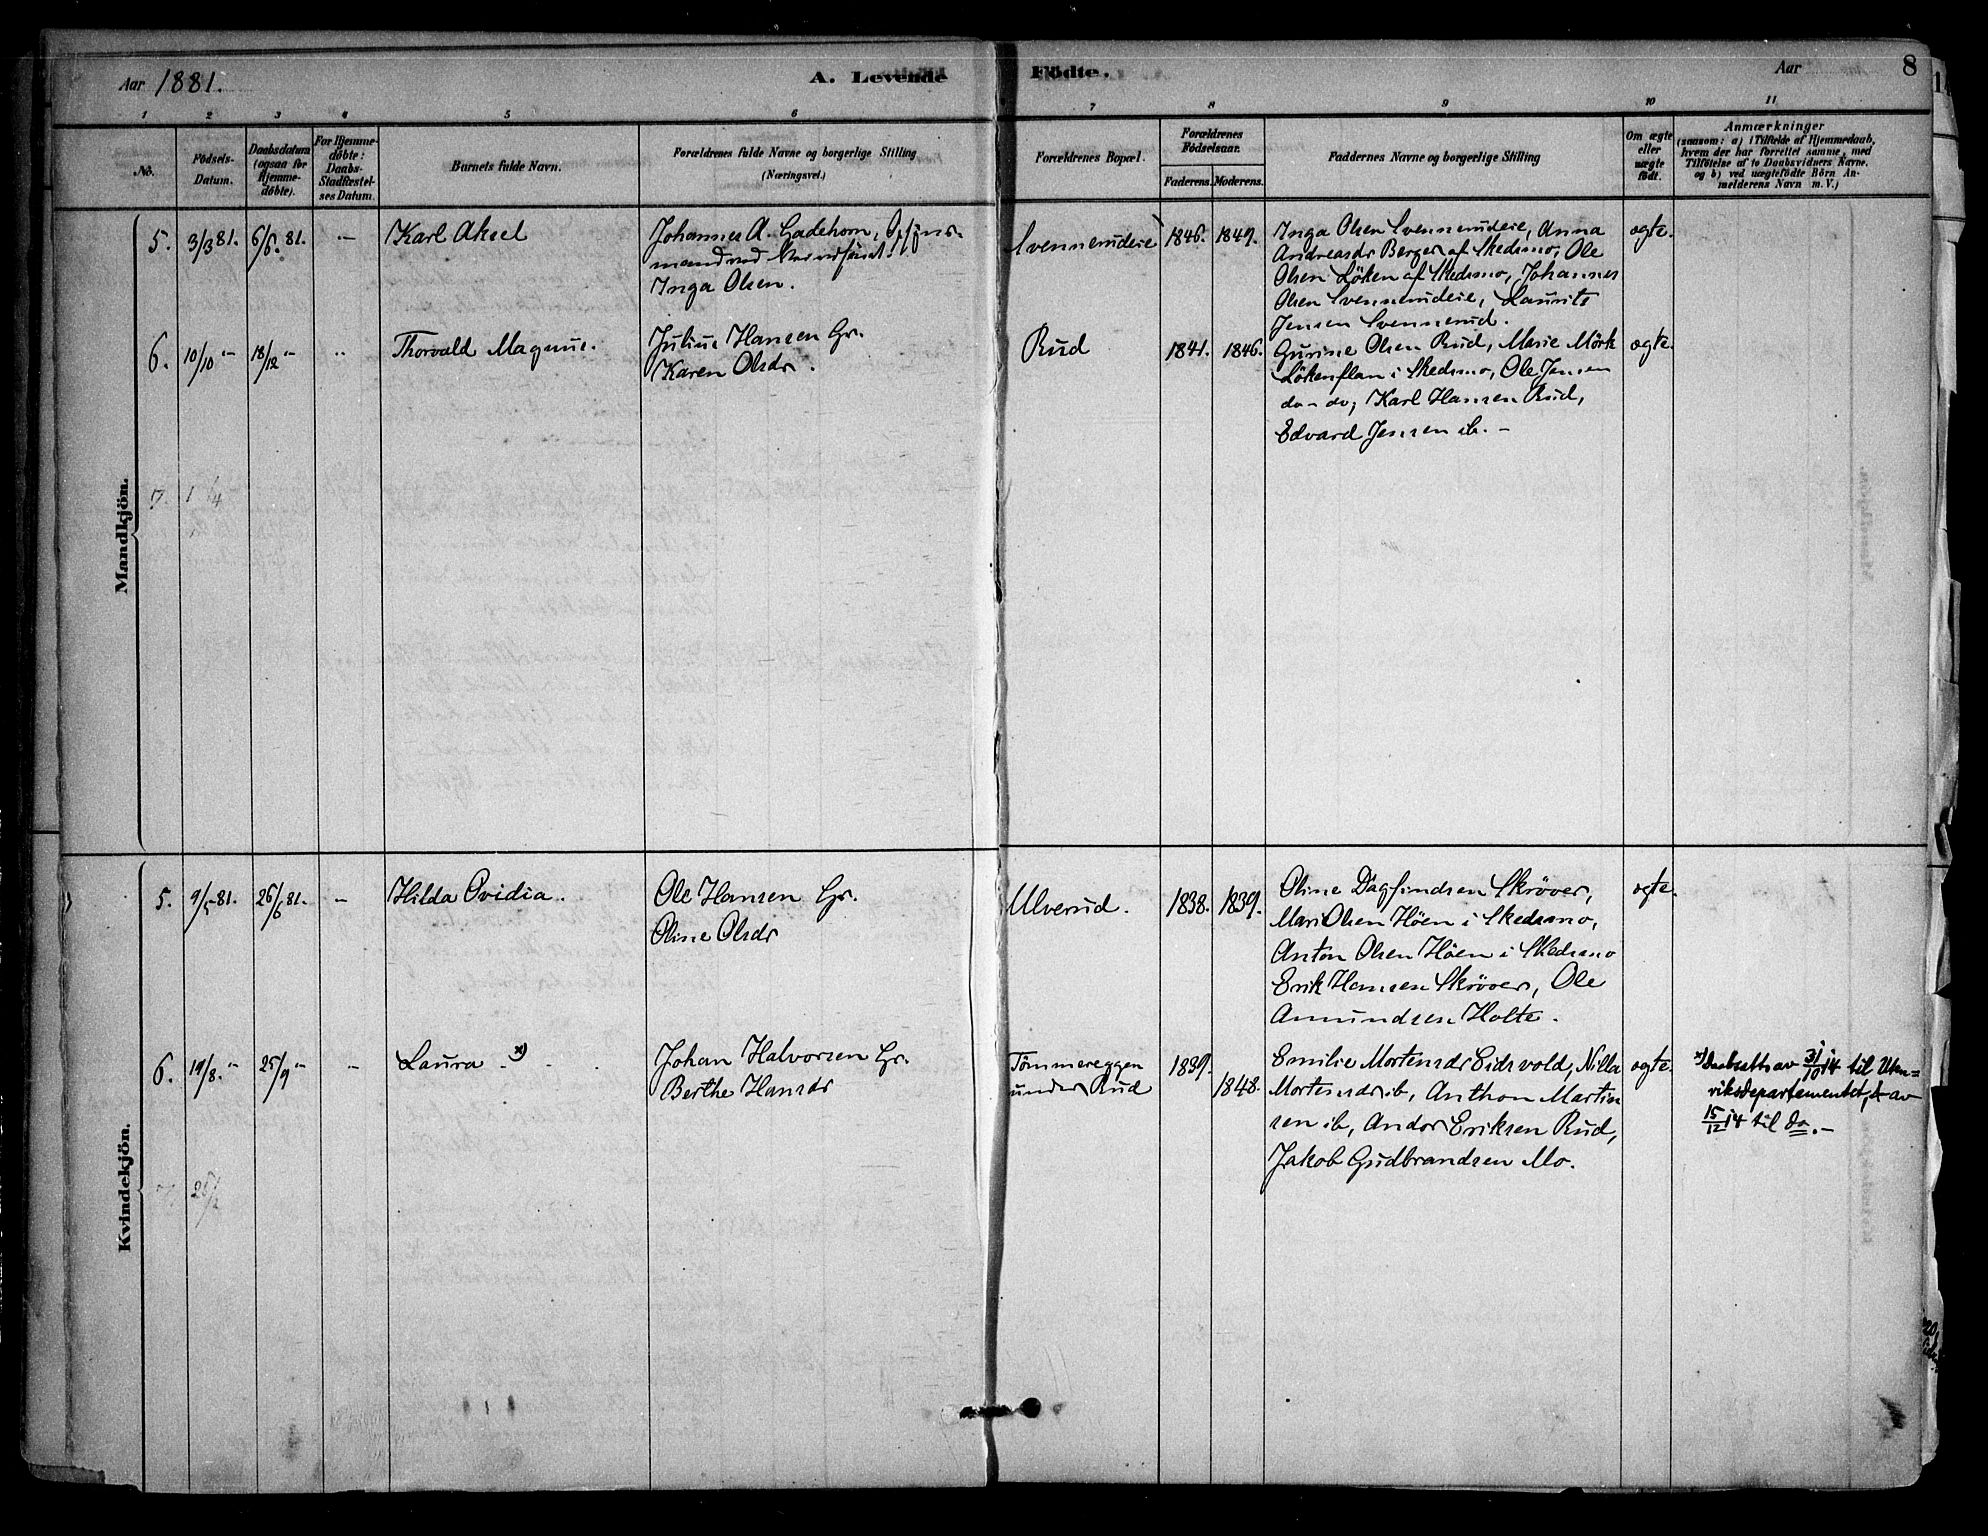 Aar 1881.
A. Levende
Födte.
Aar
8
1
2
3
4
5
6
7
8
9
10
11
No.
Födsels-
Datum.
Daabsdatum
(ogsaa for
Hjemme-
döbte).
For Hjemme-
döbte:
Daabs-
Stadfæstel-
ses Datum.
Barnets fulde Navn.
Forældrenes fulde Navne og borgerlige Stilling
(Næringsvei.)
Forældrenes Bopæl.
Forældrenes
Födselsaar.
Faderens.
Moderens.
Faddernes Navne og borgerlige Stilling
Om ægte
eller
uægte
födt.
Anmærkninger
(saasom: a) i Tilfælde af Hjemmedaab,
hvem der har forrettet samme, med
Tilföielse af to Daabsvidners Navne,
og b) ved uægtefödte Börn An-
melderens Navn m. V.)
Mandkjön.
5. 3/3 81. 6/6. 81. - Karl Aksel
Johannes A. Gadehorn,
mand ved
Inga Olsen.
Svennerudeie
1846. 1849.
Inga Olsen Svennerudeie, Anna
Andreasdr Berger af Skedsmo, Ole
Olsen Löken af Skedsmo, Johannes
Olsen Svennerudeie, Laurits
Jensen Svennerud.
ægte.
6. 10/10 " 18/12 " " Thorvald Magnus.
Julius Hansen Gr.
Karen Olsdr.
Rud
1841. 1846.
Gurine Olsen Rud, Marie Mörk
Lökenflan i Skedsmo, Ole Jensen
do - do, Karl Hansen Rud,
Edvard Jensen ib. -
ægte.
7. 1/4
Kvindekjön.
5. 9/5 81. 26/6 81. - Hilda Ovidia.
Ole Hansen Gr.
Oline Olsdr
Ulverud.
1838. 1839.
Oline Dagfindsen Skröver,
Mari Olsen Höen i Skedsmo,
Anton Olsen Höen i Skedsmo
Erik Hansen Skröver, Ole
Amundsen Holte.
ægte.
6. 19/8. " 25/9 " - Laura x)
Johan Halvorsen Gr.
Berthe Hansdr
Tömmereggen
under Rud
1839. 1848.
Emilie Mortensdr Eidsvold, Nilla
Mortensdr ib, Anthon Martin
sen ib, Andor Eriksen Rud,
Jakob Gudbrandsen Mo.
ægte.
x) Daabsatt. av 31/10 14 til Uten-
riksdepartementet, & av
15/12 14 til do. -
7. 26/2